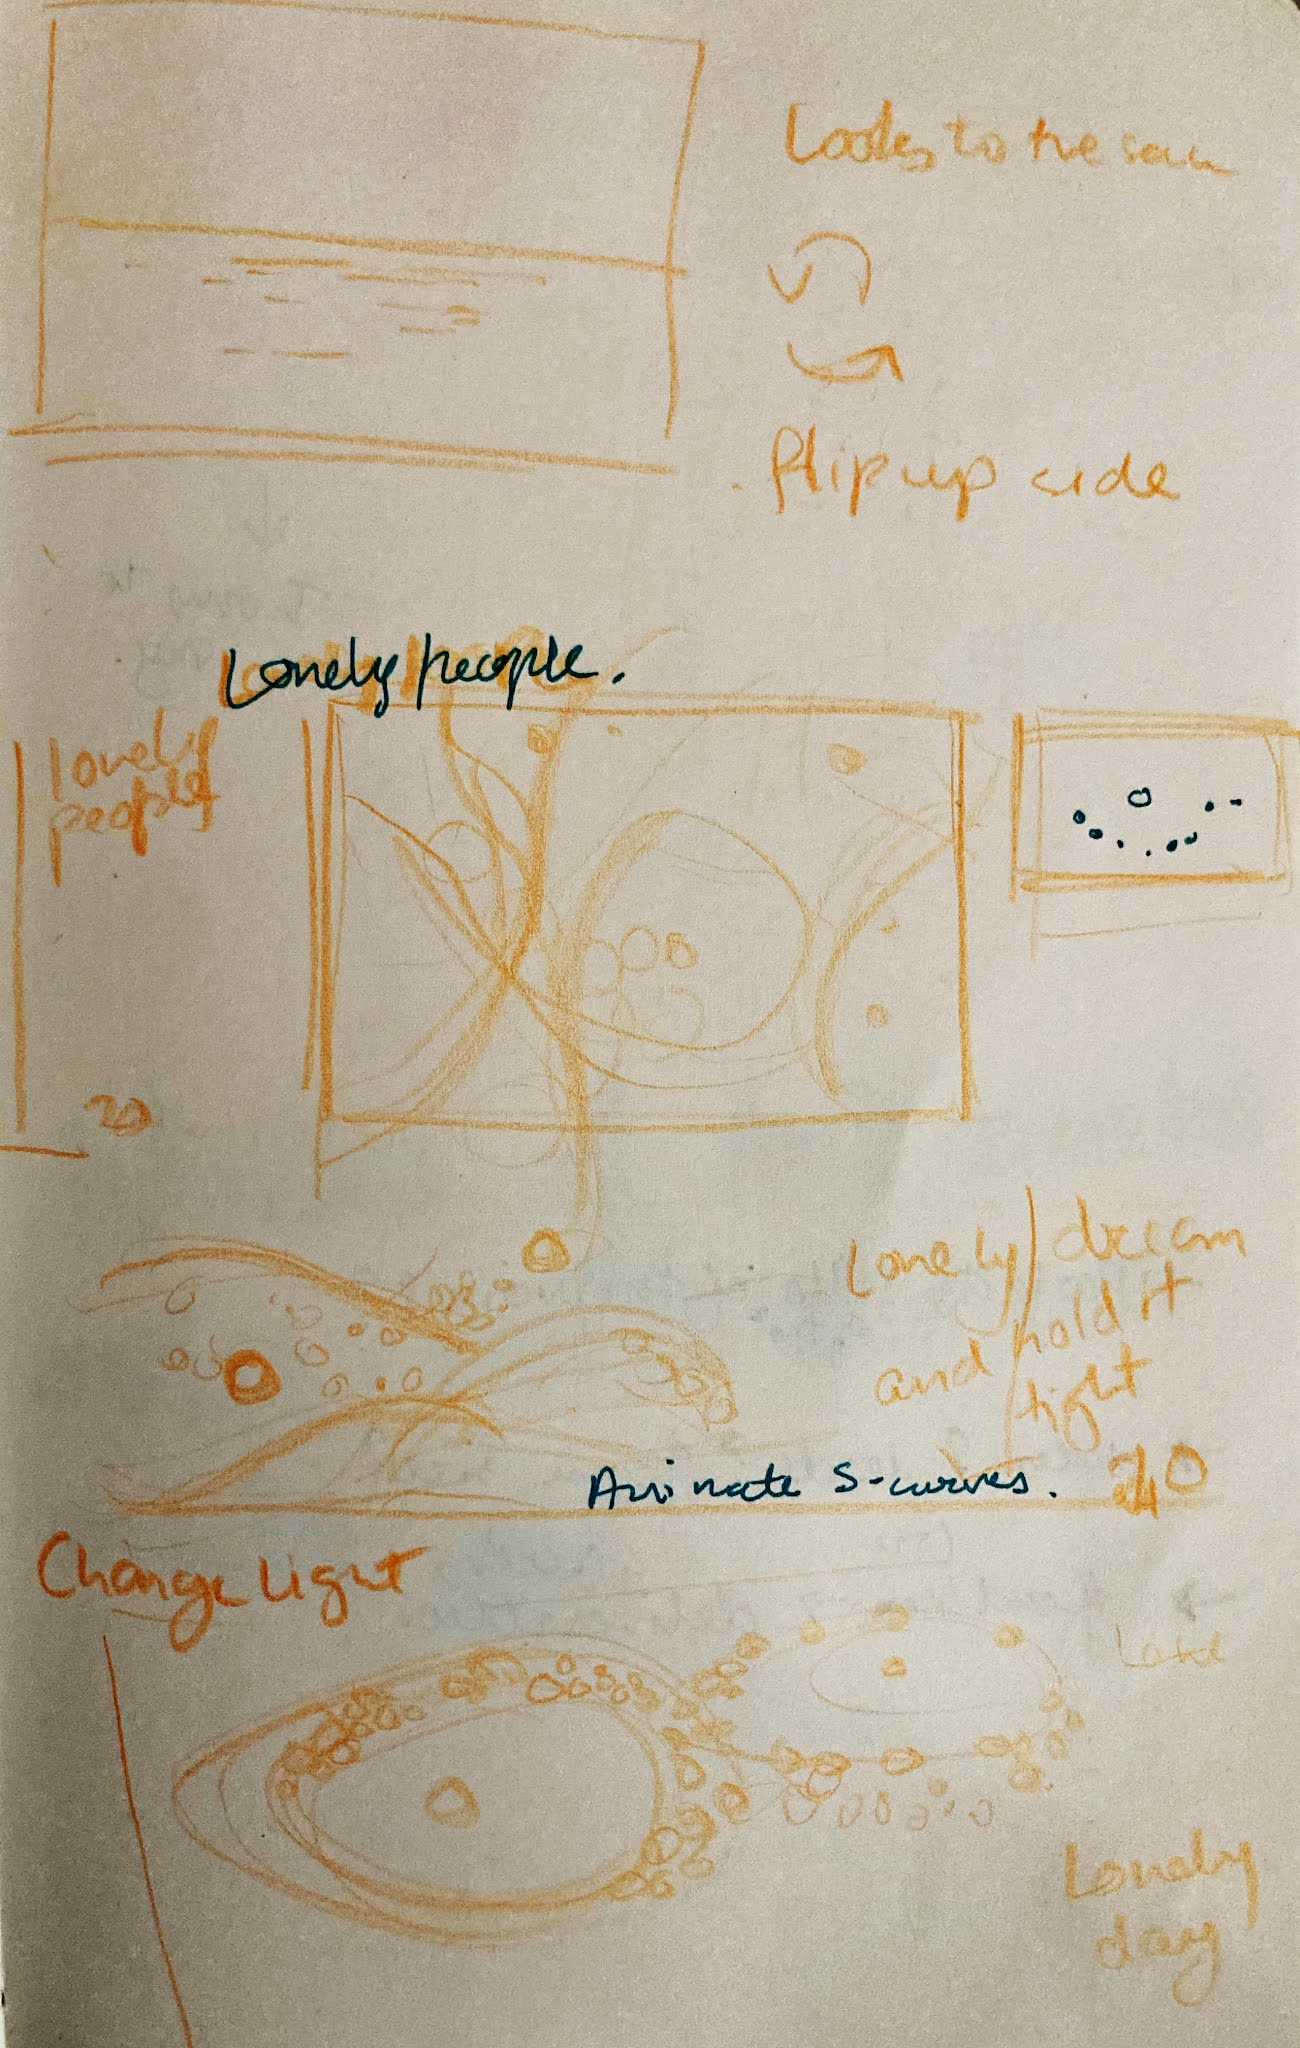 Looks to the sea
Flip up side
Lonely/people.
lonely
people
20
Lonely/dream
and/hold it
tight
Animate S-curves.
40
Change Light
Lonely
day